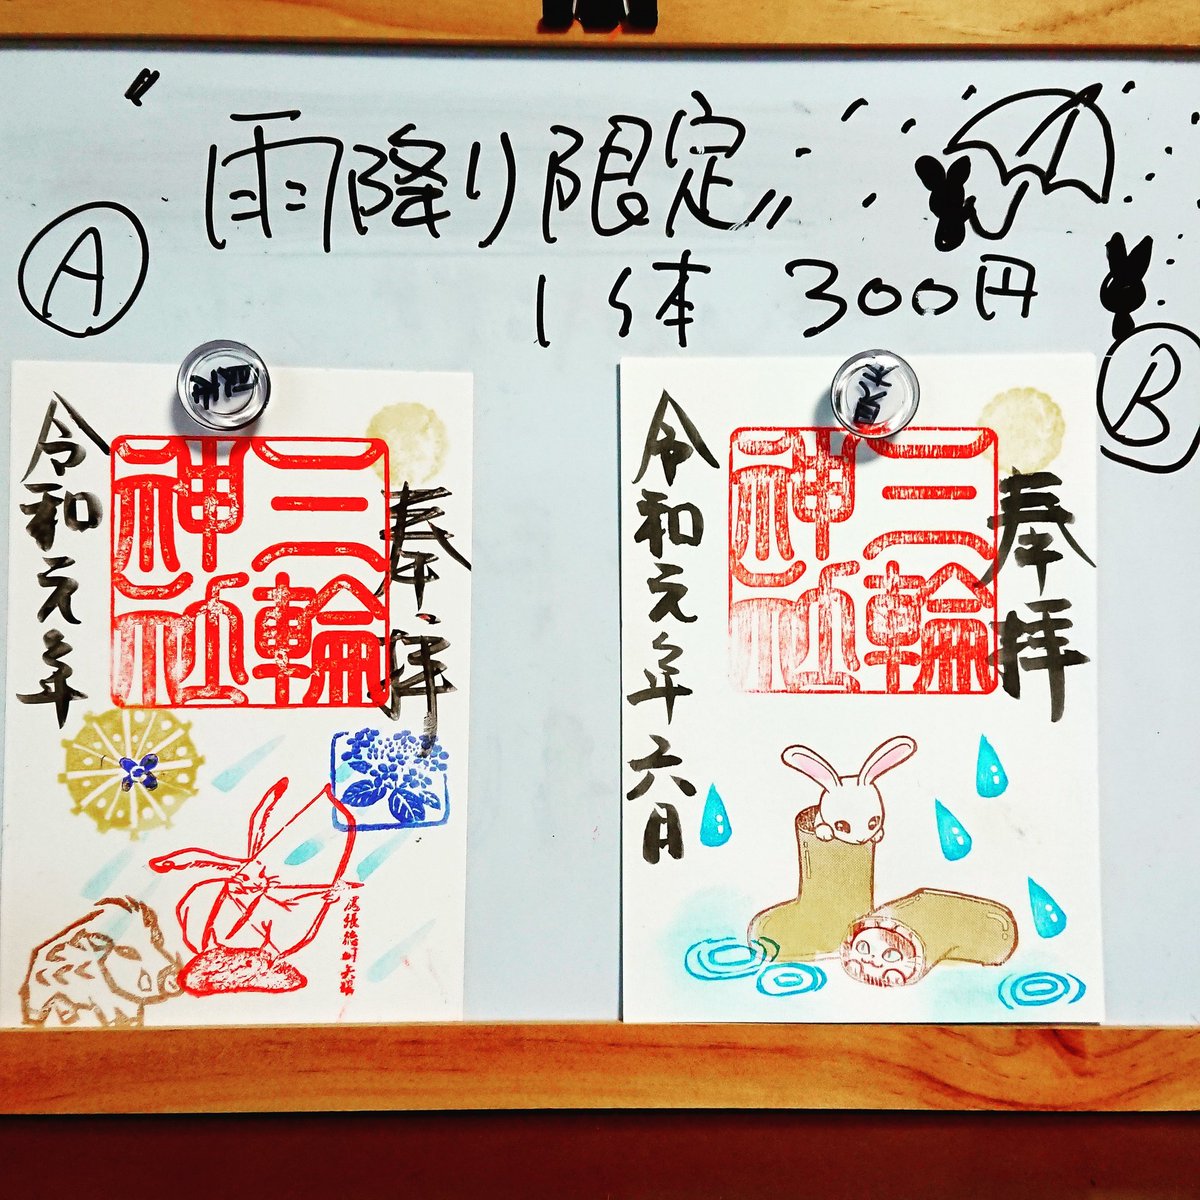 "雨降り限定"
1体 300円
A
奉拝
三輪
神社
令和元年
B
奉拝
三輪
神社
令和元年六月